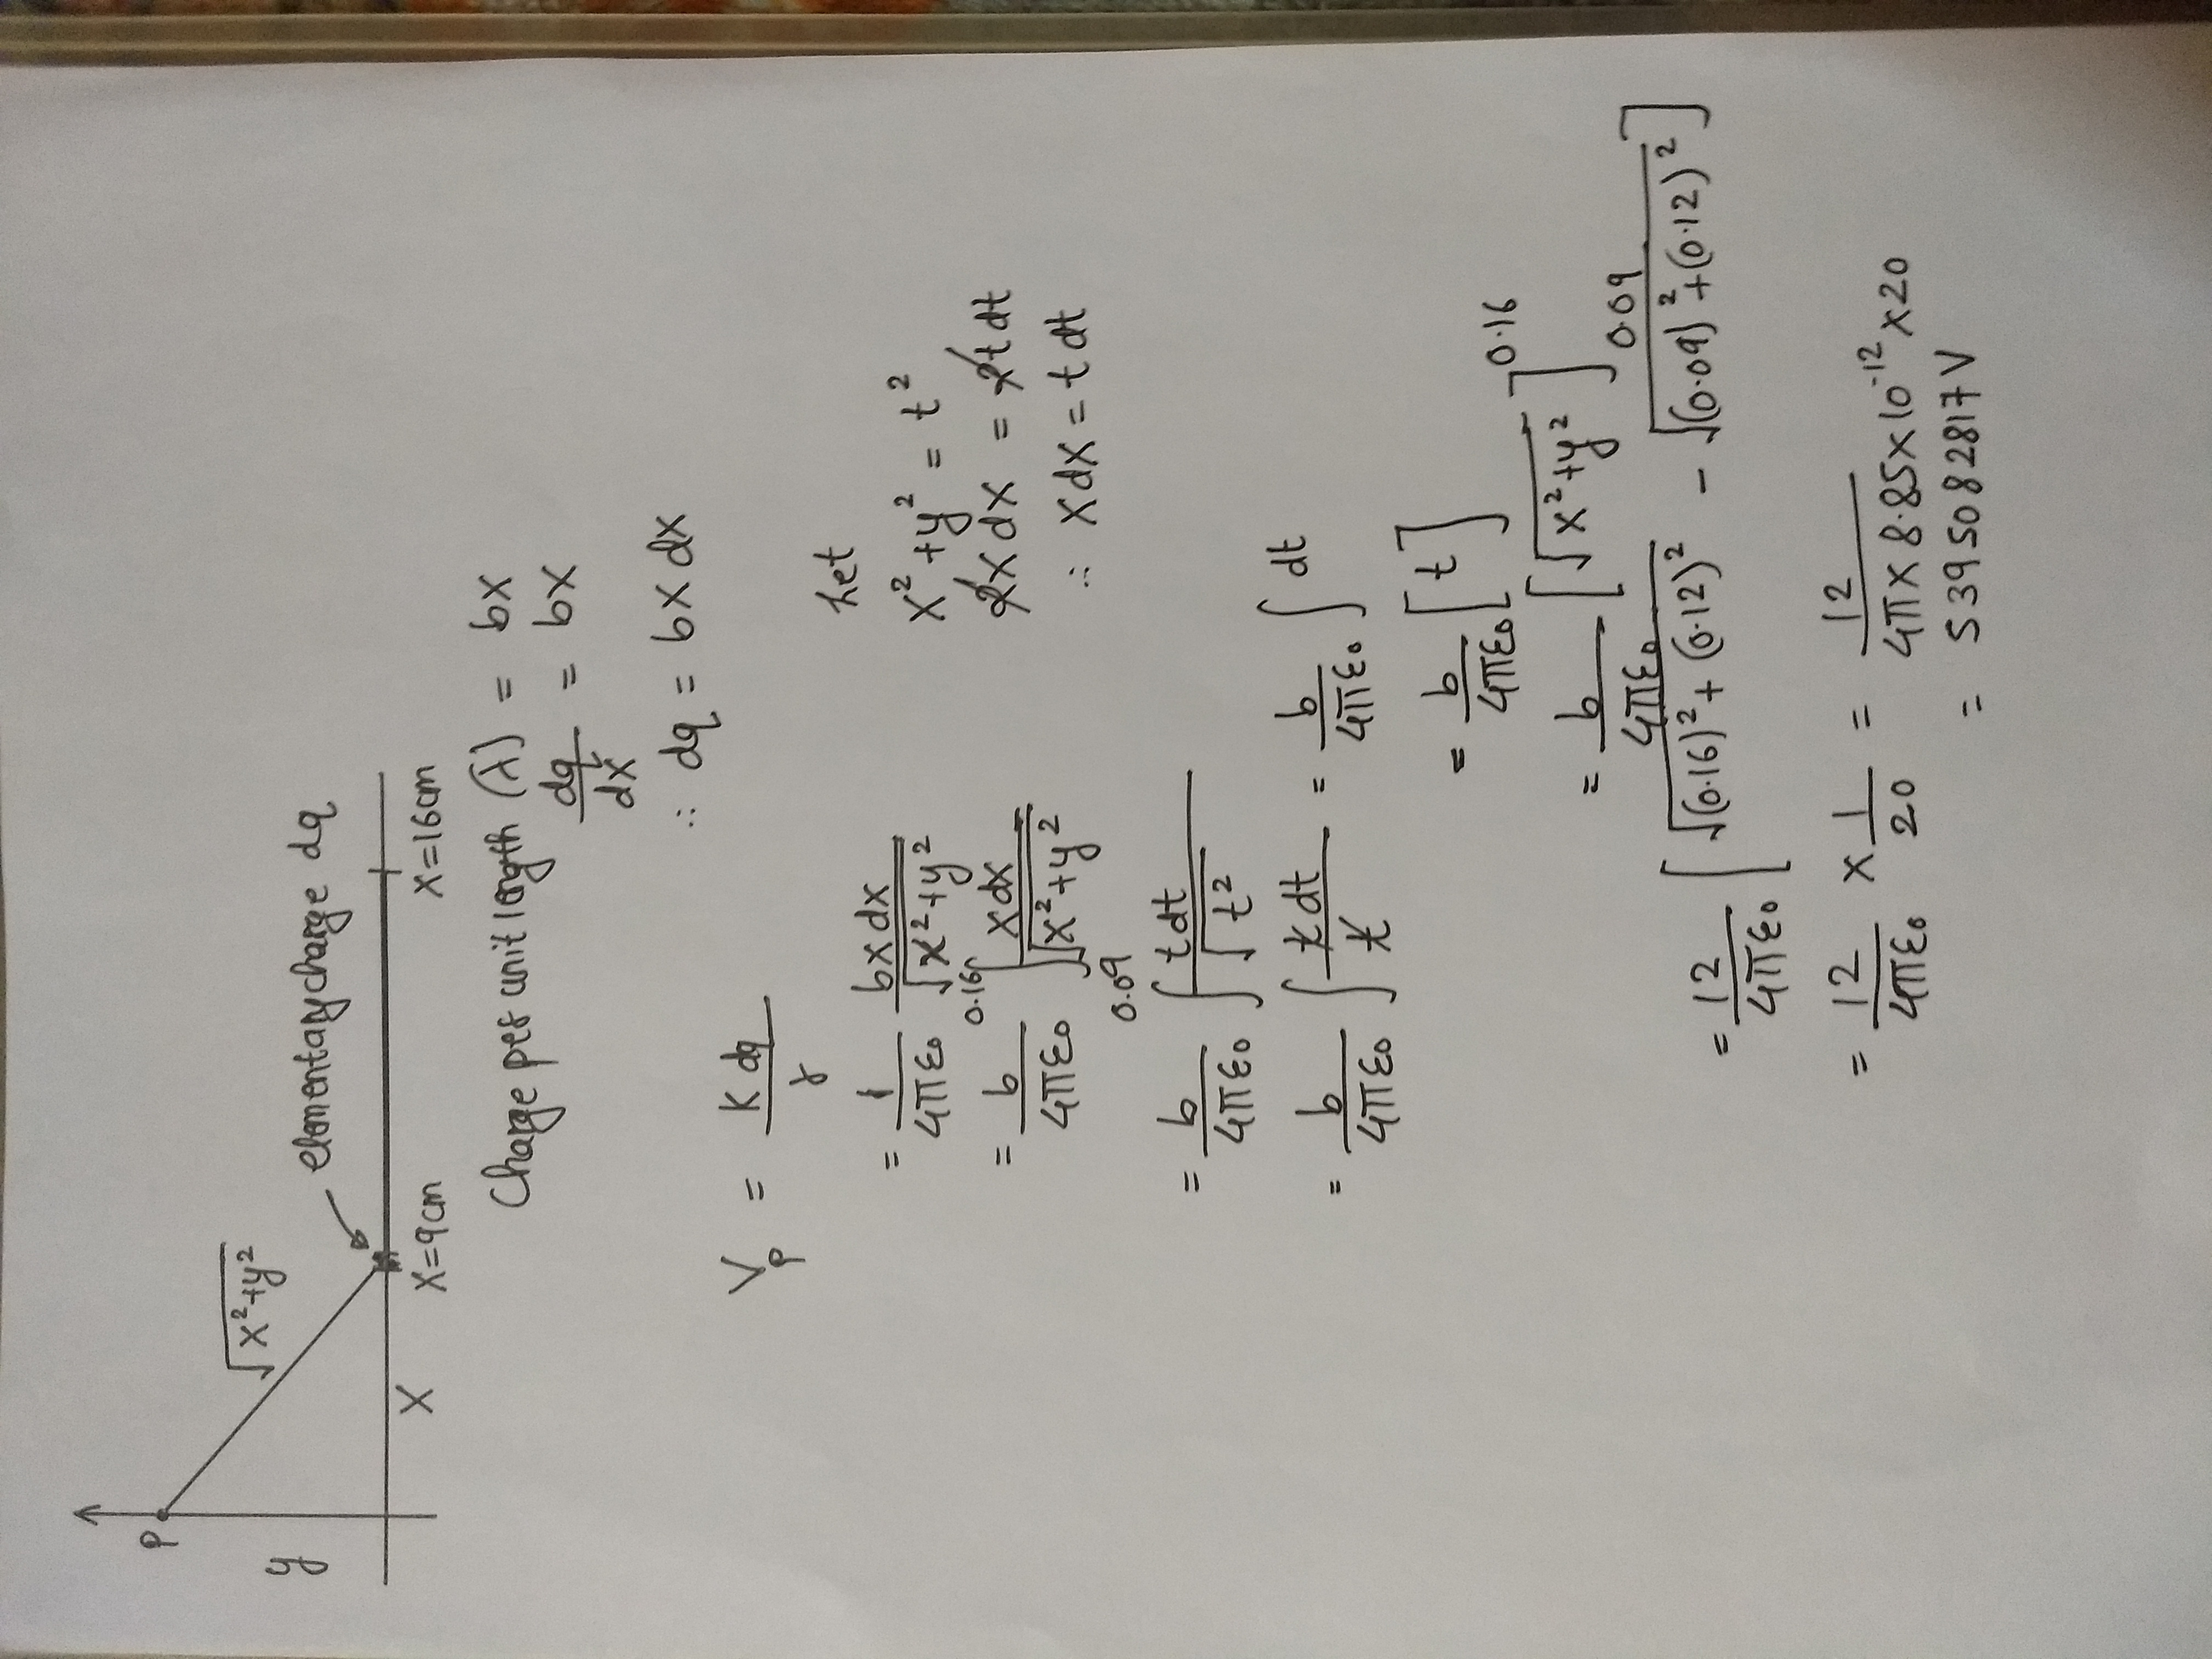 P
y
√(x²+y²)
elementary charge dq
X
x=9cm
x=16cm
Charge per unit length (λ) = bx
dq/dx = bx
∴ dq = bx dx
V_P = K dq / r
= 1/4πε₀ bxdx/√(x²+y²)
Let
= b/4πε₀ ∫_{0.09}^{0.16} xdx/√(x²+y²)
x² + y² = t²
2xdx = 2tdt
∴ xdx = tdt
= b/4πε₀ ∫ tdt/√t²
= b/4πε₀ ∫ tdt/t = b/4πε₀ ∫ dt
= b/4πε₀ [t]
= b/4πε₀ [√(x²+y²)]_{0.09}^{0.16}
= 12/4πε₀ [√((0.16)² + (0.12)²) - √((0.09)² + (0.12)²)]
= 12/4πε₀ × 1/20 = 12/4π×8.85×10⁻¹²×20
= 5395082817V